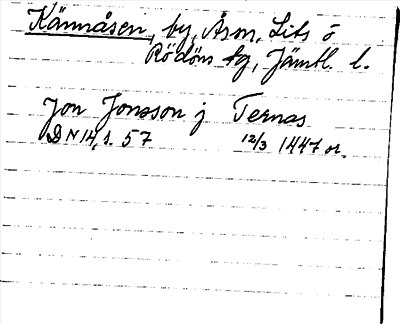 Kännåsen, by, Åson, Lits o
Rödöns tg, Jämtl. l.
Jon Jonsson j Ternas
DN 14, s. 57 12/3 1447 or.